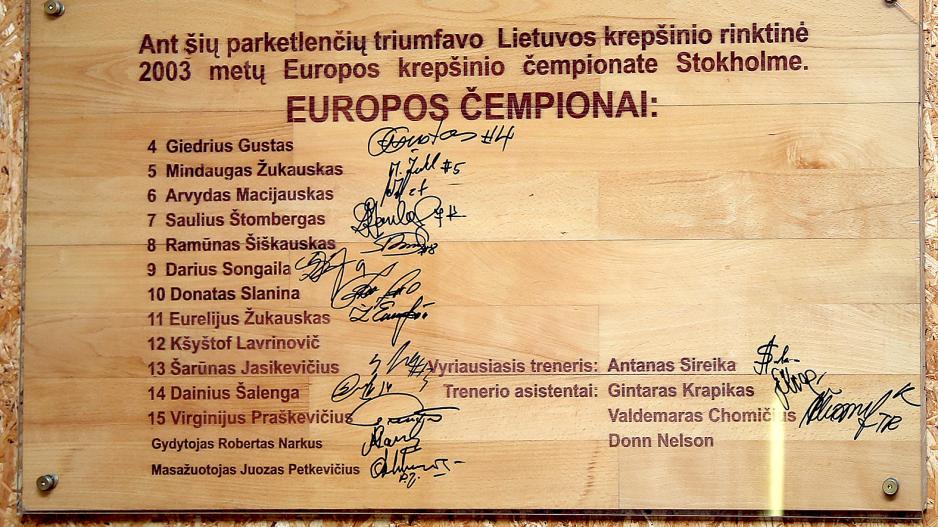 Ant šių parketlenčių triumfavo Lietuvos krepšinio rinktinė
2003 metų Europos krepšinio čempionate Stokholme.
EUROPOS ČEMPIONAI:
4 Giedrius Gustas
5 Mindaugas Žukauskas #5
6 Arvydas Macijauskas
7 Saulius Štombergas
8 Ramūnas Šiškauskas
9 Darius Songaila
10 Donatas Slanina
11 Eurelijus Žukauskas
12 Kšyštof Lavrinovič
13 Šarūnas Jasikevičius
14 Dainius Šalenga
15 Virginijus Praškevičius
Gydytojas Robertas Narkus
Masažuotojas Juozas Petkevičius
Vyriausiasis treneris: Antanas Sireika
Trenerio asistentai: Gintaras Krapikas
Valdemaras Chomičius
Donn Nelson